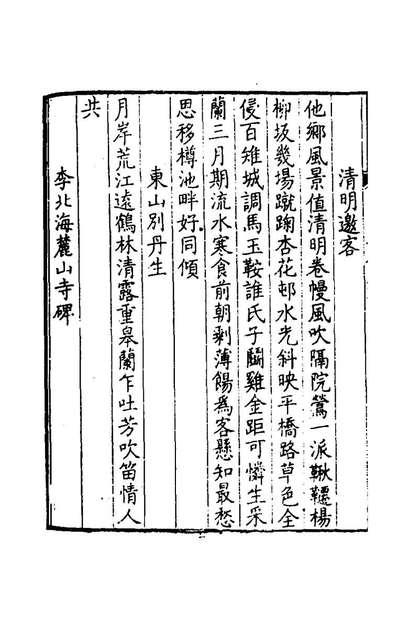 清明邀客
他鄉風景值清明卷幔風吹隔院鶯一派鞦韆楊
柳坂幾場蹴踘杏花邨水光斜映平橋路草色全
侵百雉城調馬玉鞍誰氏子鬬雞金距可憐生采
蘭三月期流水寒食前朝剩薄餳為客懸知最愁
思移樽池畔好同傾
東山別丹生
月岸荒江遠鶴林清露重皋蘭乍吐芳吹笛情人
共
李北海麓山寺碑